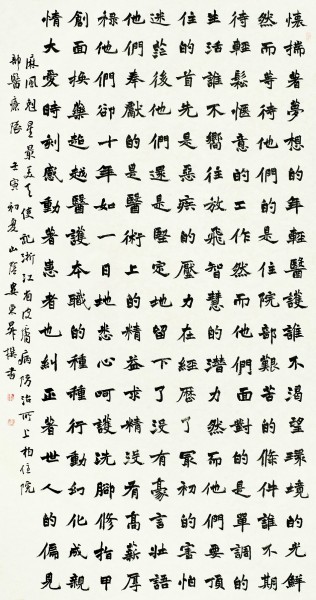 懷揣著夢想的年輕醫護誰不渴望環境的光鮮
然而等待他們的是住院部艱苦的條件誰不期
待輕鬆愜意的工作然而他們面對的是單調的
生活誰不嚮往放飛智慧的潛力然而他們要頂
住的首先是惡疾的壓力在經歷了最初的害怕
迷茫後他們還是堅定地留下了沒有豪言壯語
他們奉獻的是醫術上的精益求精沒有高薪厚
祿他們卻十年如一日地悉心呵護洗腳修指甲
創面換藥超越醫護本職的種種行動幻化成親
情大愛時刻感動著患者也糾正著世人的偏見
麻風最美天使記浙江省皮膚病防治所上柏住院
部醫療隊 壬寅初夏山陰婁東昇撰書